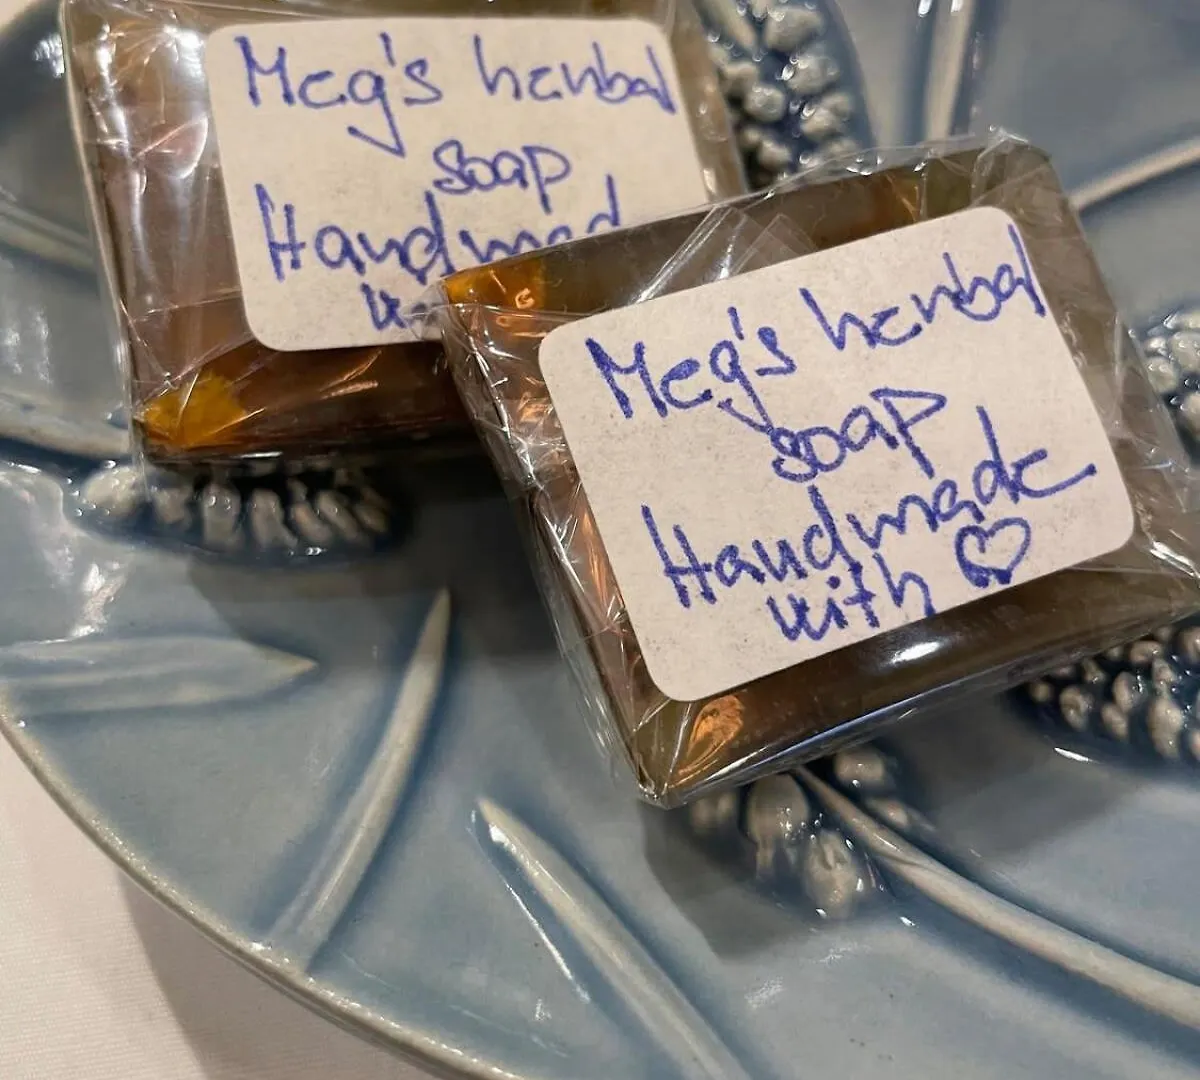 Meg's herbal
soap
Handmad
Meg's herbal
soap
Handmade
with ♡